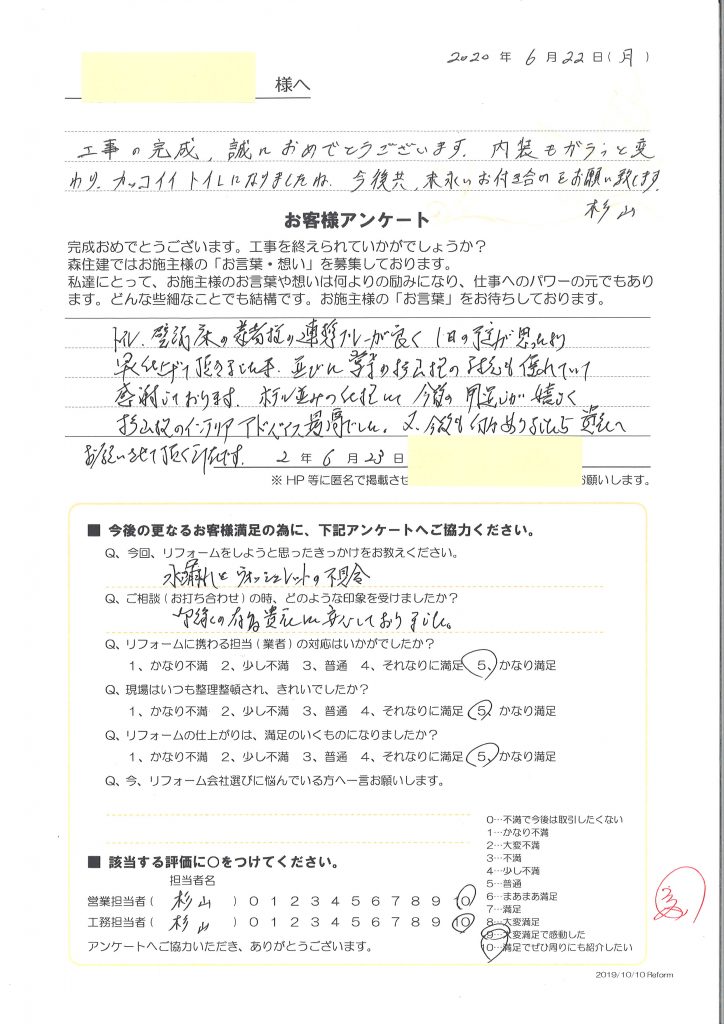 2020 年 6 月 22 日 ( 月 )
様へ
工事の完成、誠におめでとうございます。内装もガラっと変
わり、カッコイイトイレになりましたね。今後共、末永いお付き合いをお願い致します。
杉山
お客様アンケート
完成おめでとうございます。工事を終えられていかがでしょうか？
森住建ではお施主様の「お言葉・想い」を募集しております。
私達にとって、お施主様のお言葉や想いは何よりの励みになり、仕事へのパワーの元でもあり
ます。どんな些細なことでも結構です。お施主様の「お言葉」をお待ちしております。
トイレ、壁 床の業者様の連携プレーが良く 1日の予定が思ったより
早く仕上げて頂きました事、並びに 杉山様の も優れていて
感謝しております。ホテル並みの仕上りにて 今後の用足しが嬉しく
杉山様のインテリアアドバイス最高でした。又、今後も何かありましたら貴社へ
お願いさせて頂く所存です。 2 年 6 月 23 日
※ HP 等に匿名で掲載させ お願いします。
■ 今後の更なるお客様満足の為に、下記アンケートへご協力ください。
Q、今回、リフォームをしようと思ったきっかけをお教えください。
水漏れとウォシュレットの不具合
Q、ご相談（お打ち合わせ）の時、どのような印象を受けましたか？
貴社に安心しておりました。
Q、リフォームに携わる担当（業者）の対応はいかがでしたか？
1、かなり不満 2、少し不満 3、普通 4、それなりに満足 5、かなり満足
Q、現場はいつも整理整頓され、きれいでしたか？
1、かなり不満 2、少し不満 3、普通 4、それなりに満足 5、かなり満足
Q、リフォームの仕上がりは、満足のいくものになりましたか？
1、かなり不満 2、少し不満 3、普通 4、それなりに満足 5、かなり満足
Q、今、リフォーム会社選びに悩んでいる方へ一言お願いします。
0…不満で今後は取引したくない
1…かなり不満
2…大変不満
3…不満
4…少し不満
5…普通
6…まあまあ満足
7…満足
8…大変満足
9…大変満足で感動した
10…満足でぜひ周りにも紹介したい
■ 該当する評価に〇をつけてください。
担当者名
営業担当者（ 杉山 ）0 1 2 3 4 5 6 7 8 9 10
工務担当者（ 杉山 ）0 1 2 3 4 5 6 7 8 9 10
アンケートへご協力いただき、ありがとうございます。
2019/10/10 Reform